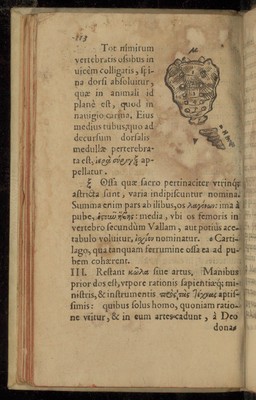 113
Tot nimirum
vertebratis ossibus in
uicẽm colligatis, spi
na dorsi absoluitur,
quæ in animali id
planè est, quod in
nauigio carina. Eius
medius tubus, quo ad
decursum dorsalis
medullæ perterebra-
ta est, ἱερὰ σύριγξ ap-
pellatur.
ξ Ossa quæ sacro pertinaciter vtrinq;
astricta sunt, varia indipiscuntur nomina.
Summa enim pars ab ilibus, os : ima à
pube, : media, vbi os femoris in
vertebro secundùm Vallam, aut potius ace-
tabulo voluitur, ἰσχίον nominatur. Carti-
lago, qua tanquam ferrumine ossa ea ad pu-
bem cohærent.
III. Restant κῶλα siue artus, Manibus
prior dos est, vtpore rationis sapientiaq; mi-
nistris, & instrumentis aptis-
simis: quibus solus homo, quoniam ratio-
ne vtitur, & in eum artes cadunt, à Deo
dona-